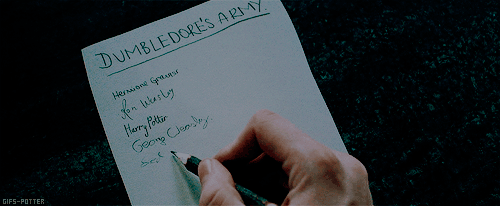 DUMBLEDORE'S ARMY
Hermione Granger
Ron Weasley
Harry Potter
George
GIFS-POTTER